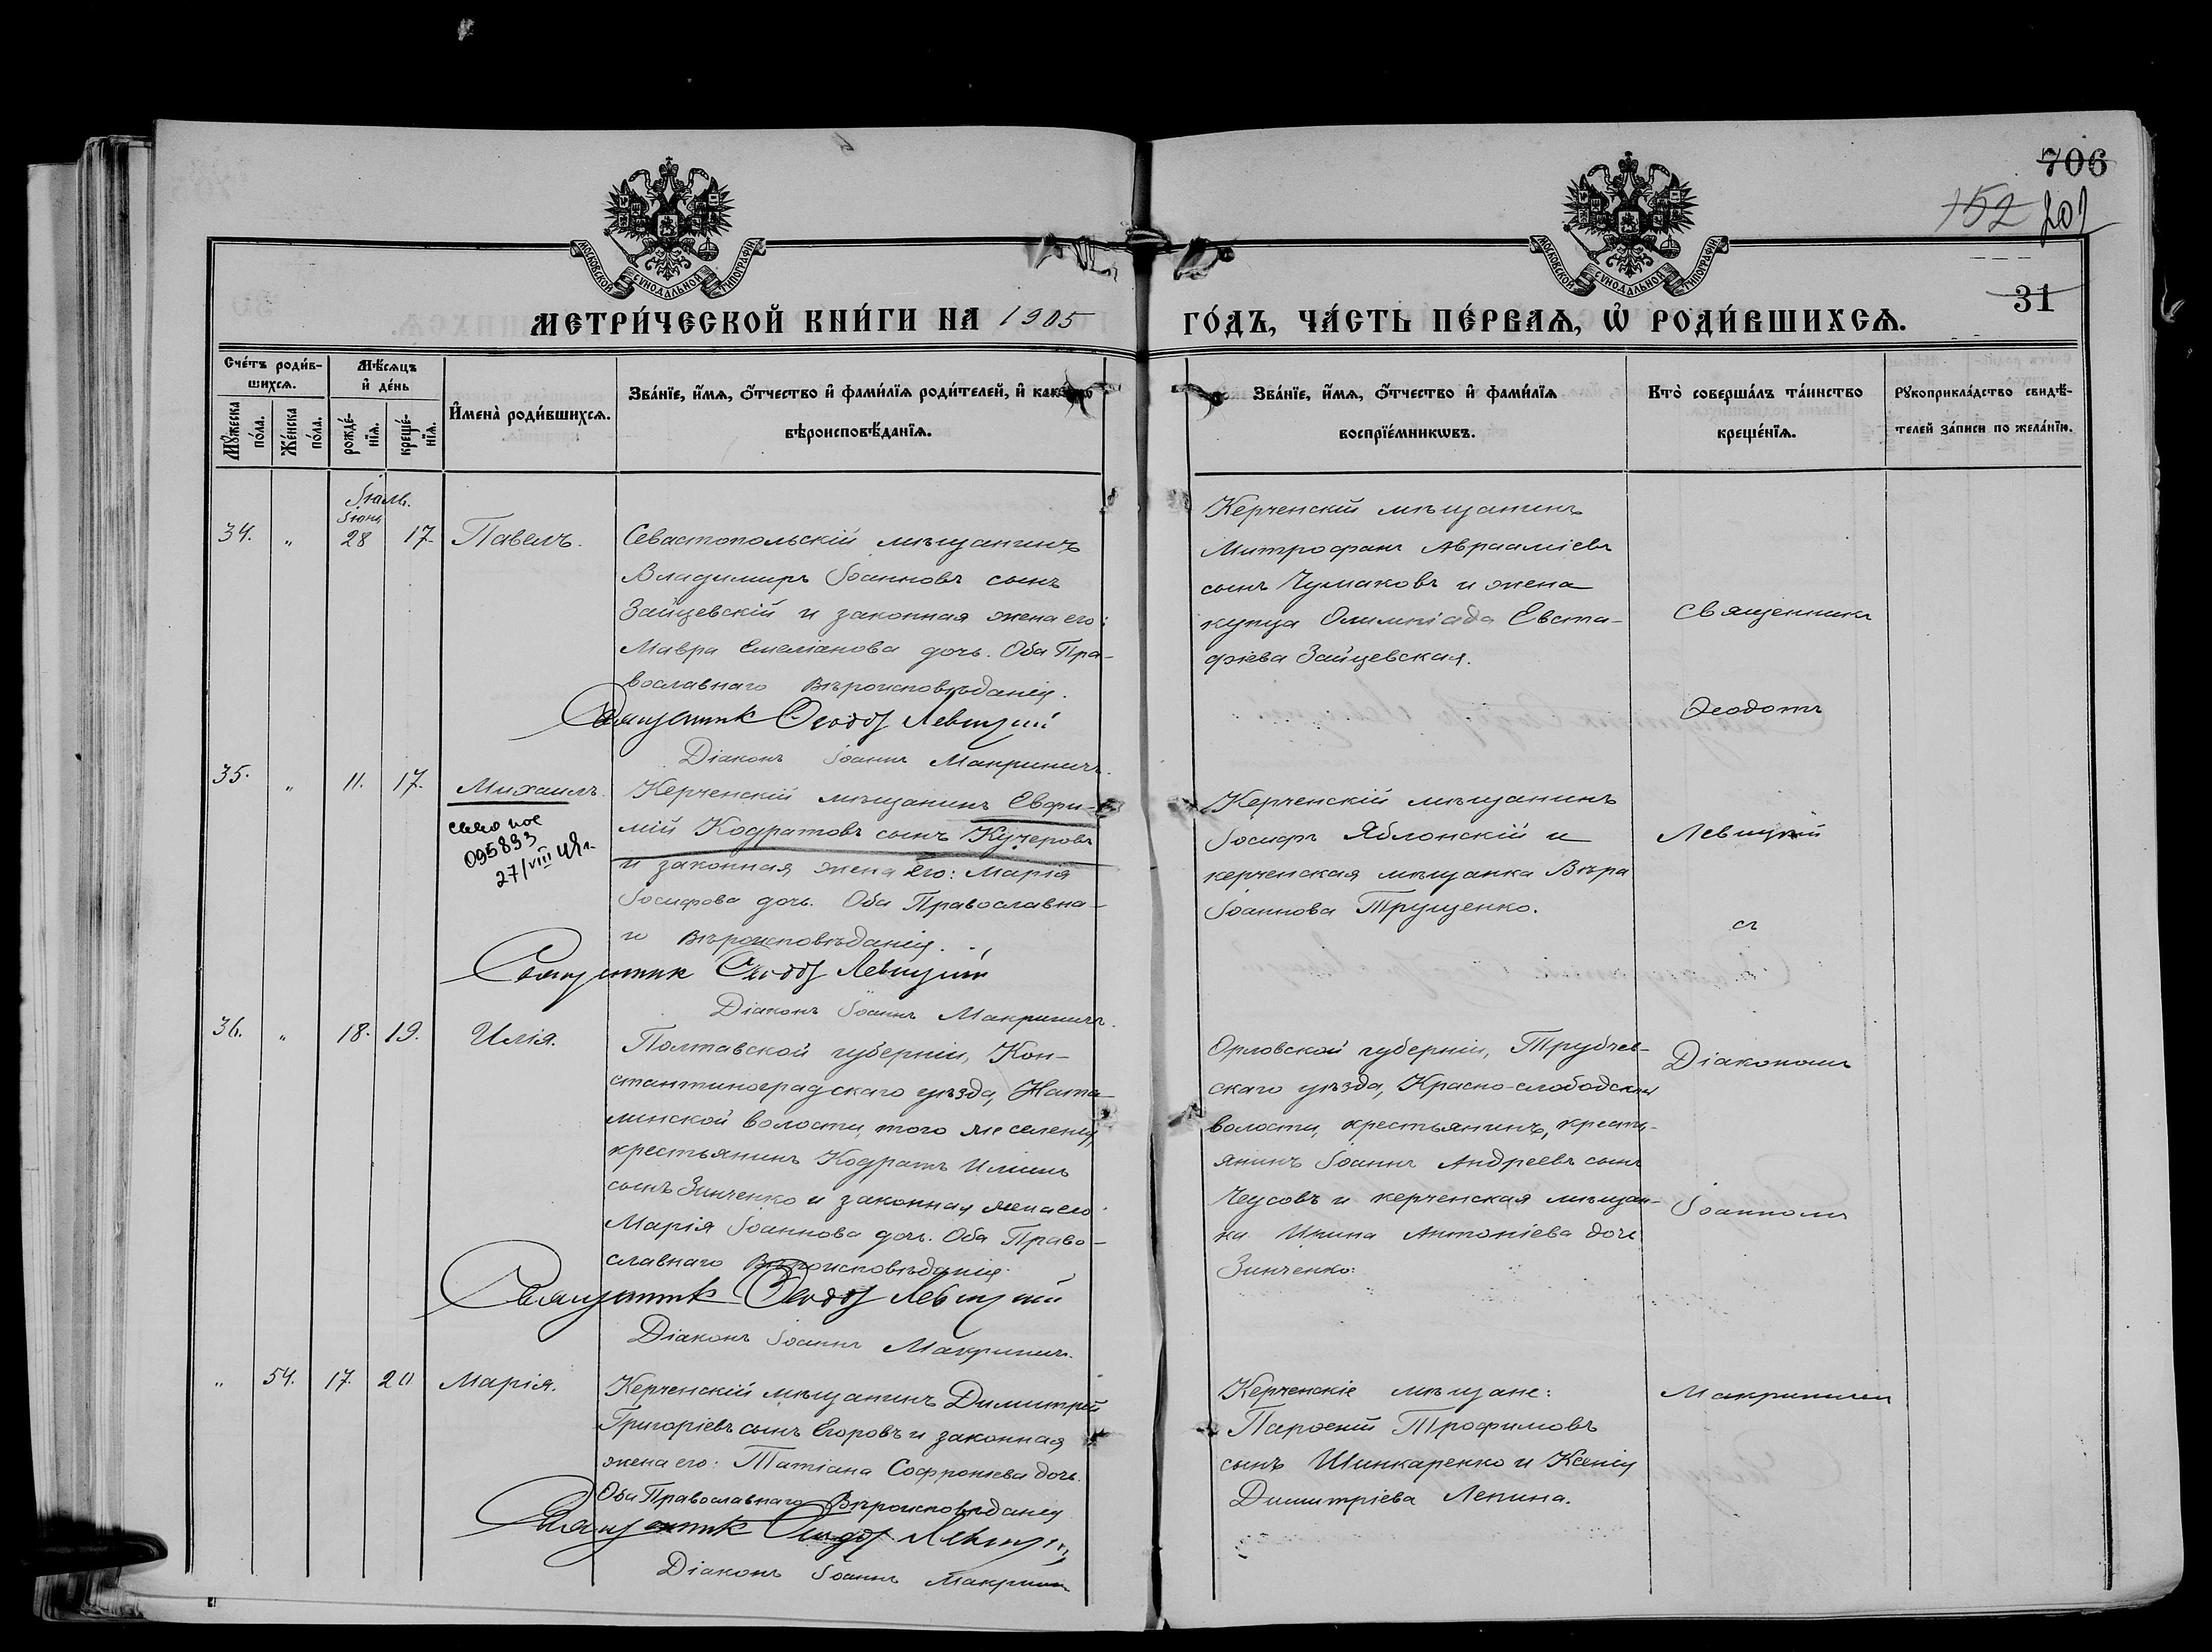 706
152 201
31
МОСКОВСКОЙ СѴНОДАЛЬНОЙ ТИПОГРАФІИ
МОСКОВСКОЙ СѴНОДАЛЬНОЙ ТИПОГРАФІИ
МЕТРИ́ЧЕСКОЙ КНИ́ГИ НА 1905
ГО́ДЪ, ЧА́СТЬ ПЕ́РВАѦ, Ѽ РОДИ́ВШИХСѦ.
Сче́тъ роди́в-
шихсѧ.
Мꙋ́жеска
по́ла.
Же́нска
по́ла.
Мѣ́сѧцъ
и҆ де́нь
рожде́-
нїѧ.
креще́-
нїѧ.
И҆мена̀ роди́вшихсѧ.
Зва́нїе, и҆́мѧ, ѻ҆́тчество и҆ фами́лїѧ роди́телей, и҆
вѣроисповѣ́данїѧ.
Зва́нїе, и҆́мѧ, ѻ҆́тчество и҆ фами́лїѧ
воспрїе́мникѡвъ.
Кто̀ соверша́лъ та́инство
креще́нїѧ.
Рꙋкоприкла́дство свидѣ́-
телей за́писи по жела́нїю.
Іюль.
Іюня
34. " 28 17. Павелъ.
Севастопольскій мѣщанинъ
Владимиръ Іоанновъ сынъ
Зайцевскій и законная жена его:
Мавра Емеліанова дочь. Оба Пра-
вославнаго Вѣроисповѣданія.
Священник Ѳеодот Левицкій
Діаконъ Іоаннъ Макриничъ.
Керченскій мѣщанинъ
Митрофанъ Авраамiевъ
сынъ Чумаковъ и жена
купца Олимпіада Евста-
фіева Зайцевская.
Священникъ
Ѳеодотъ
35. " 11. 17. Михаилъ.
095893
27/VIII
Керченскій мѣщанинъ Евфи-
мій Кодратовъ сынъ Кучеровъ
и законная жена его: Марія
Іосифова дочь. Оба Православна-
го Вѣроисповѣданія.
Священник Ѳеодот Левицкій
Діаконъ Іоаннъ Макриничъ.
Керченскій мѣщанинъ
Іосифъ Яблонскій и
керченская мѣщанка Вѣра
Іоаннова Трущенко.
Левицкій
съ
36. " 18. 19. Илія.
Полтавской губерніи, Кон-
стантиноградскаго уѣзда, Ната-
линской волости, того же селенія,
крестьянинъ Кодратъ Иліинъ
сынъ Зинченко и законная жена его:
Марія Іоаннова дочь. Оба Право-
славнаго Вѣроисповѣданія.
Священник Ѳеодот Левицкій
Діаконъ Іоаннъ Макриничъ.
Орловской губерніи, Трубчев-
скаго уѣзда, Красно-слободской
волости, крестьянинъ, кресть-
янинъ Іоаннъ Андреевъ сынъ
Чеусовъ и керченская мѣщан-
ка Ирина Антоніева дочь
Зинченко.
Діакономъ
Іоанномъ
" 54. 17. 20 Марія.
Керченскій мѣщанинъ Димитрій
Григоріевъ сынъ Егоровъ и законная
жена его: Татіана Софроніева дочь.
Оба Православнаго Вѣроисповѣданія
Священник Ѳеодот Левицкій
Діаконъ Іоаннъ Макринич
Керченскіе мѣщане:
Парѳеній Трофимовъ
сынъ Шинкаренко и Ксенія
Димитріева Лепина.
Макриничем